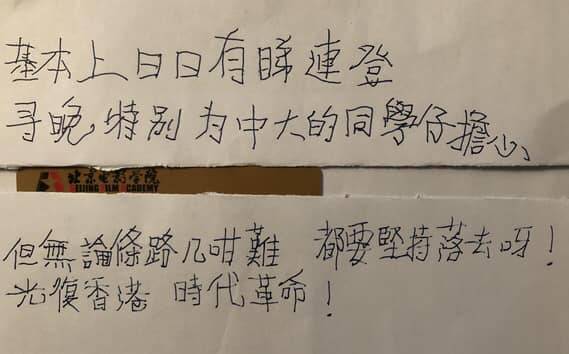 基本上日日有睇連登
寻晚特別为中大的同學仔擔心
北京电影学院
BEIJING FILM ACADEMY
但無論條路几咁難 都要堅持落去呀!
光復香港 時代革命!